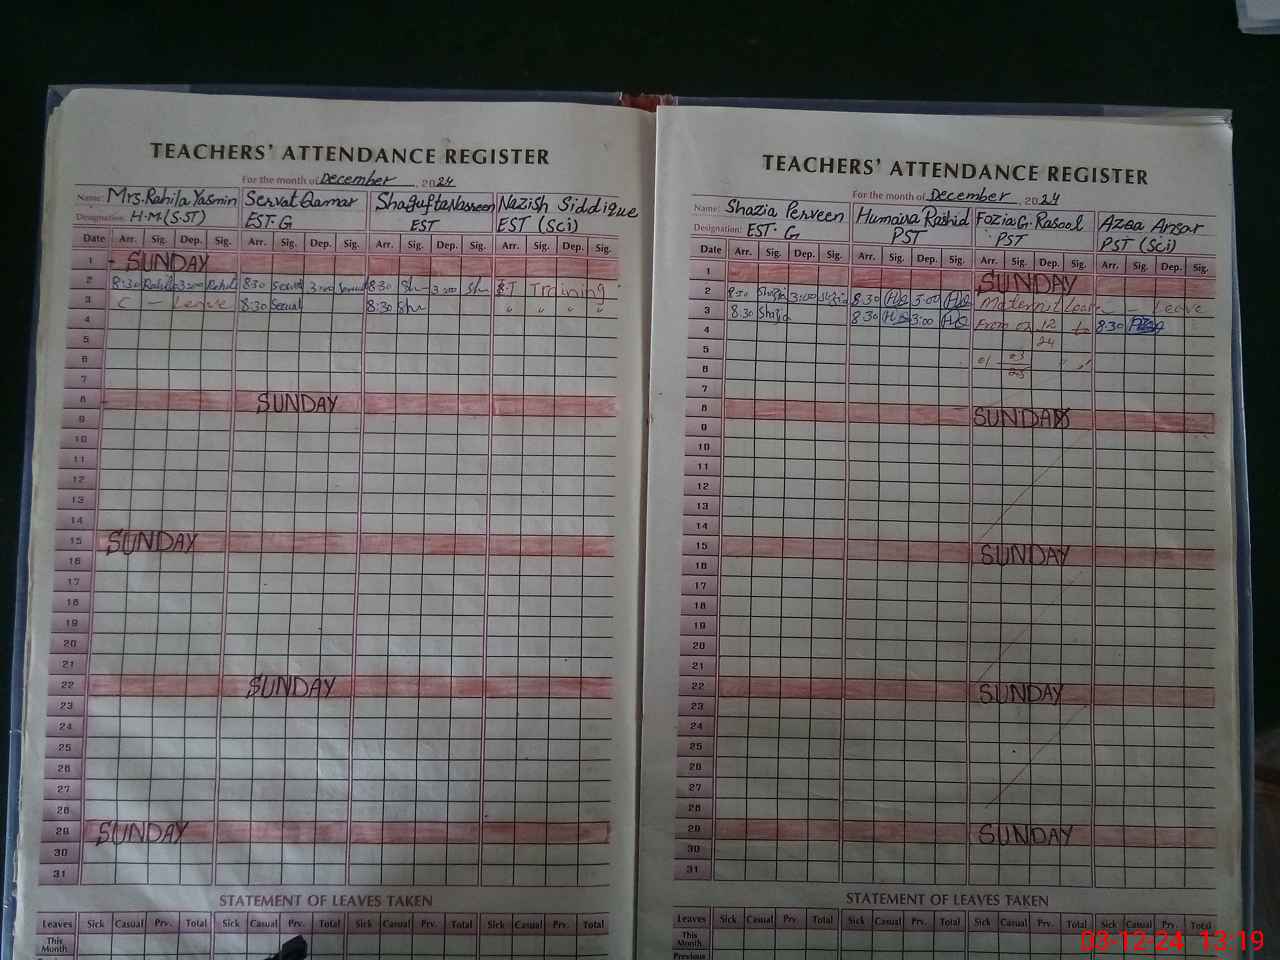 TEACHERS' ATTENDANCE REGISTER
For the month of December, 2024
Name: Mrs. Rahila Yasmin Servat Qamar Shagufta Nasreen Nazish Siddique
Designation: H.M (S.ST) EST-G EST EST (Sci)
Date Arr. Sig. Dep. Sig. Arr. Sig. Dep. Sig. Arr. Sig. Dep. Sig. Arr. Sig. Dep. Sig.
1 SUNDAY
2 8:30 Rahila 3:00 Rahila 8:30 3:00 8:30 Sh 3:00 Sh Training
3 C - Leave 8:30 8:30 Sh " " " "
4
5
6
7
8 SUNDAY
9
10
11
12
13
14
15 SUNDAY
16
17
18
19
20
21
22 SUNDAY
23
24
25
26
27
28
29 SUNDAY
30
31
STATEMENT OF LEAVES TAKEN
Leaves Sick Casual Prv. Total Sick Casual Prv. Total Sick Casual Prv. Total Sick Casual Prv. Total
This Month
TEACHERS' ATTENDANCE REGISTER
For the month of December, 2024
Name: Shazia Perveen Humaira Rashid Fozia G. Rasool Azra Ansar
Designation: EST-G PST PST PST (Sci)
Date Arr. Sig. Dep. Sig. Arr. Sig. Dep. Sig. Arr. Sig. Dep. Sig. Arr. Sig. Dep. Sig.
1 SUNDAY
2 8:30 Shazia 3:00 8:30 3:00 Maternity Leave - - Leave
3 8:30 Shazia 8:30 3:00 From 02 12 24 to 8:30
4
5 01 03 25
6
7
8 SUNDAY
9
10
11
12
13
14
15 SUNDAY
16
17
18
19
20
21
22 SUNDAY
23
24
25
26
27
28
29 SUNDAY
30
31
STATEMENT OF LEAVES TAKEN
Leaves Sick Casual Prv. Total Sick Casual Prv. Total Sick Casual Prv. Total Sick Casual Prv. Total
This Month
Previous
03-12-24 13:19